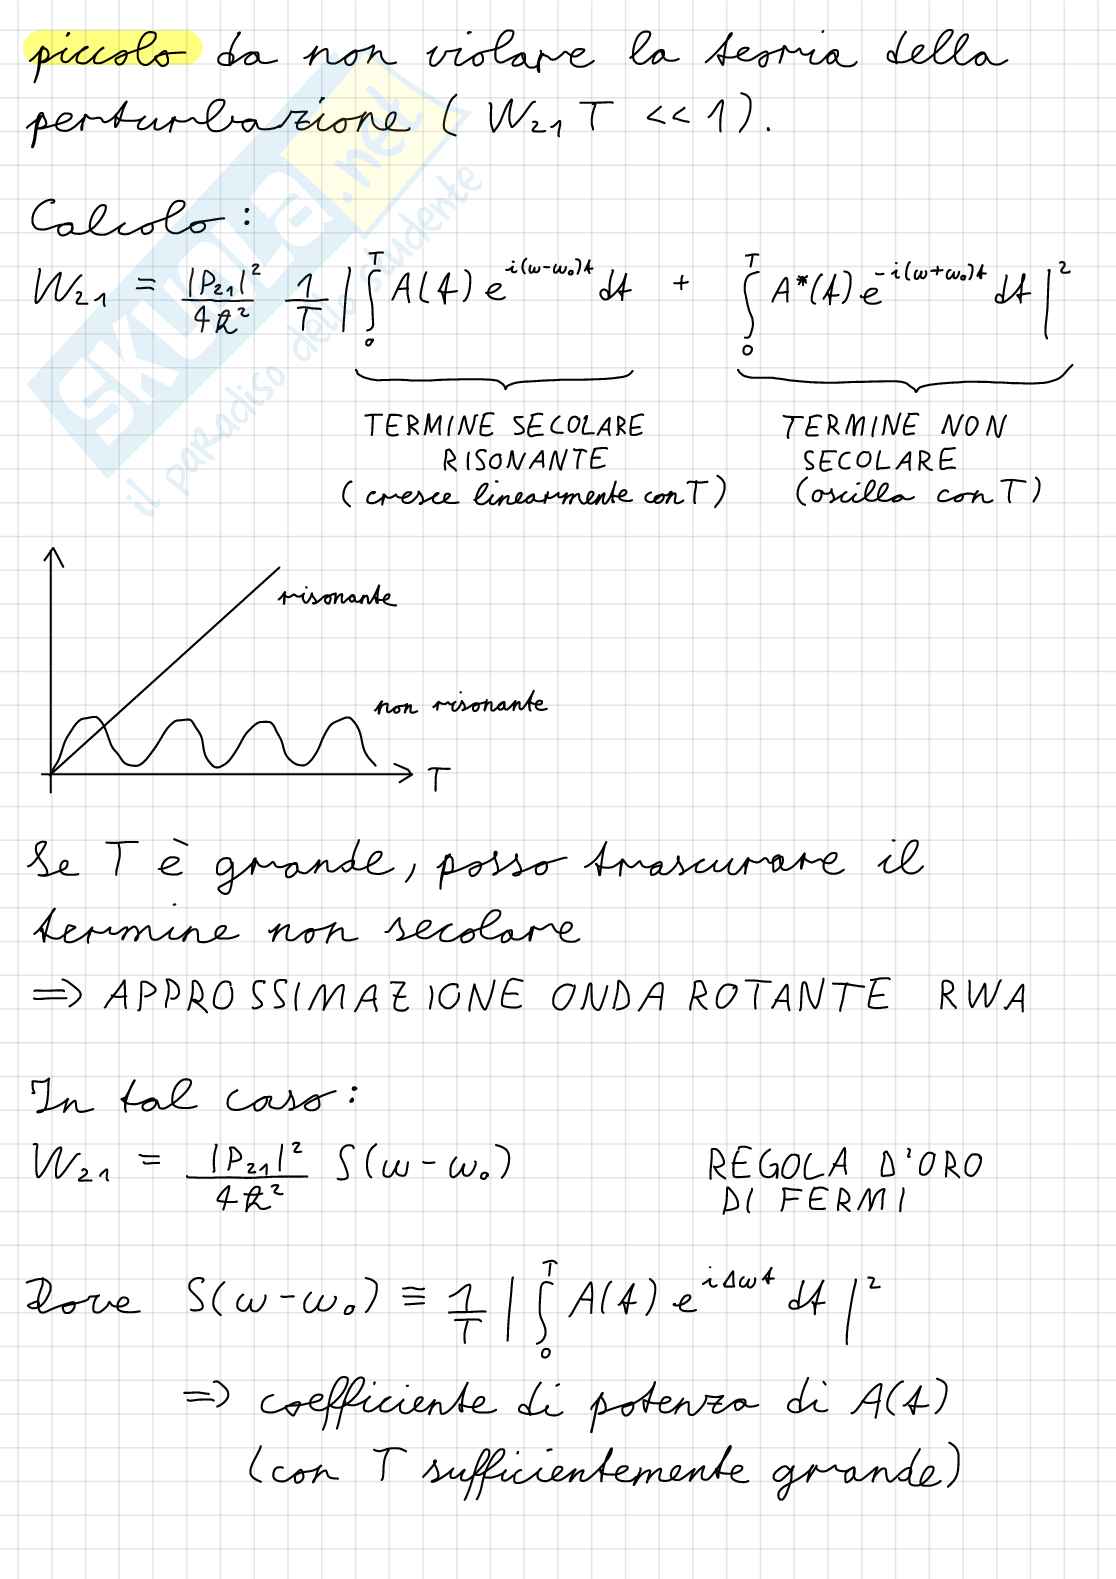 piccolo da non violare la teoria della
perturbazione ( W₂₁ T << 1 ).
Calcolo :
W₂₁ = |P₂₁|²/4ℏ² 1/T | ∫₀ᵀ A(t) e^{i(ω-ω₀)t} dt + ∫₀ᵀ A*(t) e^{-i(ω+ω₀)t} dt |²
TERMINE SECOLARE TERMINE NON
RISONANTE SECOLARE
( cresce linearmente con T ) ( oscilla con T )
risonante
non risonante
T
Se T è grande, posso trascurare il
termine non secolare
=> APPROSSIMAZIONE ONDA ROTANTE RWA
In tal caso :
W₂₁ = |P₂₁|²/4ℏ² S(ω - ω₀) REGOLA D'ORO
DI FERMI
Dove S(ω-ω₀) ≡ 1/T | ∫₀ᵀ A(t) e^{iΔωt} dt |²
=> coefficiente di potenza di A(t)
(con T sufficientemente grande)
SKUOLA.net
il paradiso dello studente